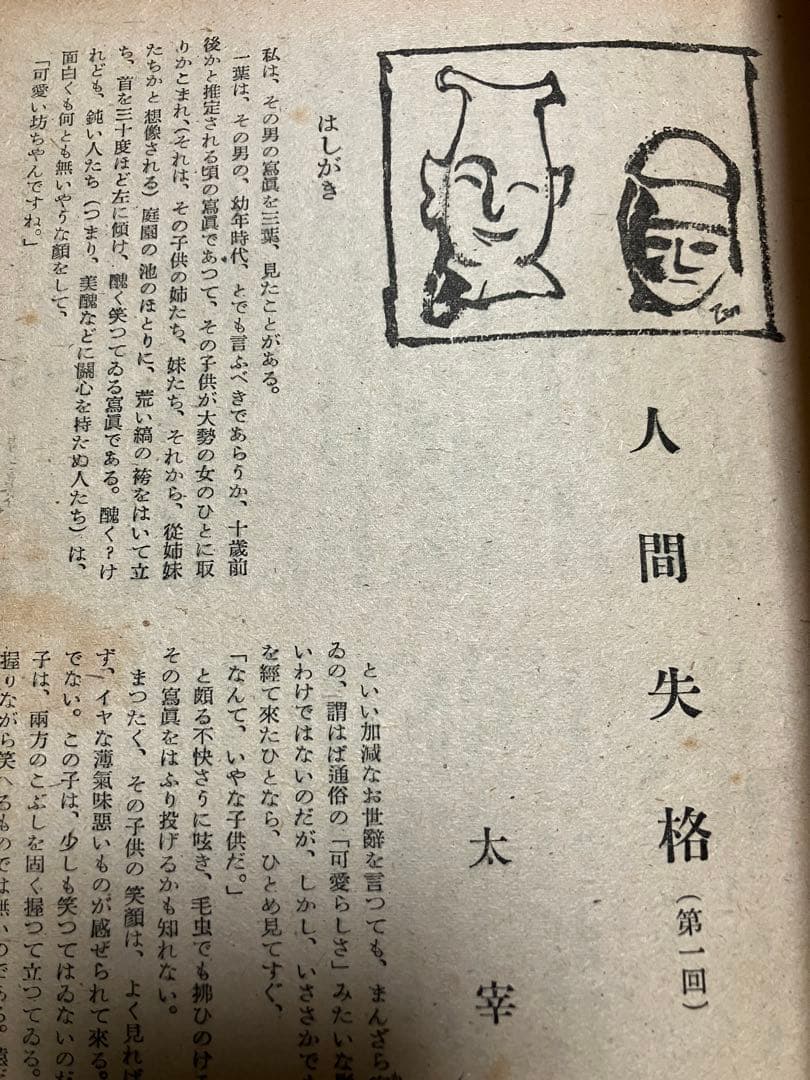 人間失格(第一回)
太宰
はしがき
私は、その男の寫眞を三葉、見たことがある。
一葉は、その男の、幼年時代、とでも言ふべきであらうか、十歲前
後かと推定される頃の寫眞であつて、その子供が大勢の女のひとに取
りかこまれ、(それは、その子供の姉たち、妹たち、それから、從姉妹
たちかと想像される)庭園の池のほとりに、荒い縞の袴をはいて立
ち、首を三十度ほど左に傾け、醜く笑つてゐる寫眞である。醜く?け
れども、鈍い人たち(つまり、美醜などに關心を持たぬ人たち)は、
面白くも何とも無いやうな顏をして、
「可愛い坊ちやんですね。」
といい加減なお世辭を言つても、まんざら
ゐの、謂はば通俗の「可愛らしさ」みたいな
いわけではないのだが、しかし、いささかで
を經て來たひとなら、ひとめ見てすぐ、
「なんて、いやな子供だ。」
と頗る不快さうに呟き、毛虫でも拂ひのける
その寫眞をはふり投げるかも知れない。
まつたく、その子供の笑顏は、よく見れば
ず、イヤな薄氣味惡いものが感ぜられて來る。
でない。この子は、少しも笑つてはゐないのだ
子は、兩方のこぶしを固く握つて立つてゐる。
握りながら笑へるものでは無いのである。